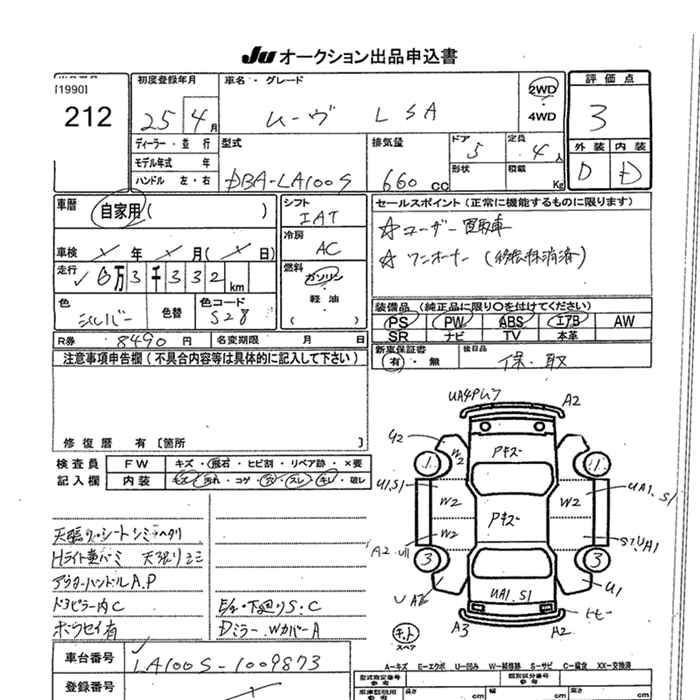 JU オークション出品申込書
[1990]
212
初度登録年月
25 4 月
車名・グレード
ムーヴ L SA
2WD
・
4WD
評価点
3
外装 内装
D D
ディーラー・並行
モデル年式 年
ハンドル 左・右
型式
DBA-LA100S
排気量
660 cc
ドア
5
定員
4 人
形状
積載
Kg
車歴
自家用 ( )
車検 年 月 ( 日)
走行 6万3千332 km
色
シルバー
色替
色コード
S28
シフト
IAT
冷房
AC
燃料
ガソリン
・
軽油
( )
セールスポイント (正常に機能するものに限ります)
☆ユーザー買取車
☆ワンオーナー (移転抹消済)
装備品 (純正品に限り○を付けてください)
PS PW ABS エアB AW
SR ナビ TV 本革
R券 8490 円
名変期限 月 日
新車保証書
有・無
後日品
保・取
注意事項申告欄 (不具合内容等は具体的に記入して下さい)
修復歴 有 [箇所 ]
検査員
記入欄
FW キズ・飛石・ヒビ割・リペア跡・×要
内装 キズ・汚れ・コゲ・穴・スレ・キレ・破レ
天張り・シートシミ・ヘタリ
Hライト黄バミ 天張りシミ
アウターハンドルA.P
ドアピラー内C
ホウセイ有
下廻りS・C
DミラーWカバーA
UA4Pムラ
A2
アキズ
U2
W2
1
1
U1.S1
W2
W2
UA1.S1
アキズ
A2.U1
W2
W2
S1.UA1
3
3
UA2
UA1.S1
U1
トビー
A3
A2
キット
スペア
A-キズ E-エクボ U-凹み W-補修跡 S-サビ C-腐食 XX-交換済
車台番号
LA100S-1009873
登録番号
型式指定番号
参考
類別区分番号
参考
車庫証明用
長さ
cm
幅
cm
高さ
cm